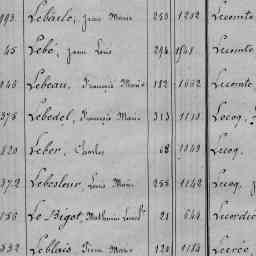 Lebarle, Jean Marie 253 1202 Lecomte
45 Lebé, Jean Louis 294 1548 Lecomte
Lebeau, François Marie 182 1652 Lecomte
375 Lebedel, François Marie 313 1110 Lecoq,
820 Leber, Charles 68 1049 Lecoq,
372 Louis Marie 255 1142 Lecoq,
156 Le Bigot, Mathurin 21 644 Lecordier
332 Leblais, Pierre Marie 120 1184 Lecrée,